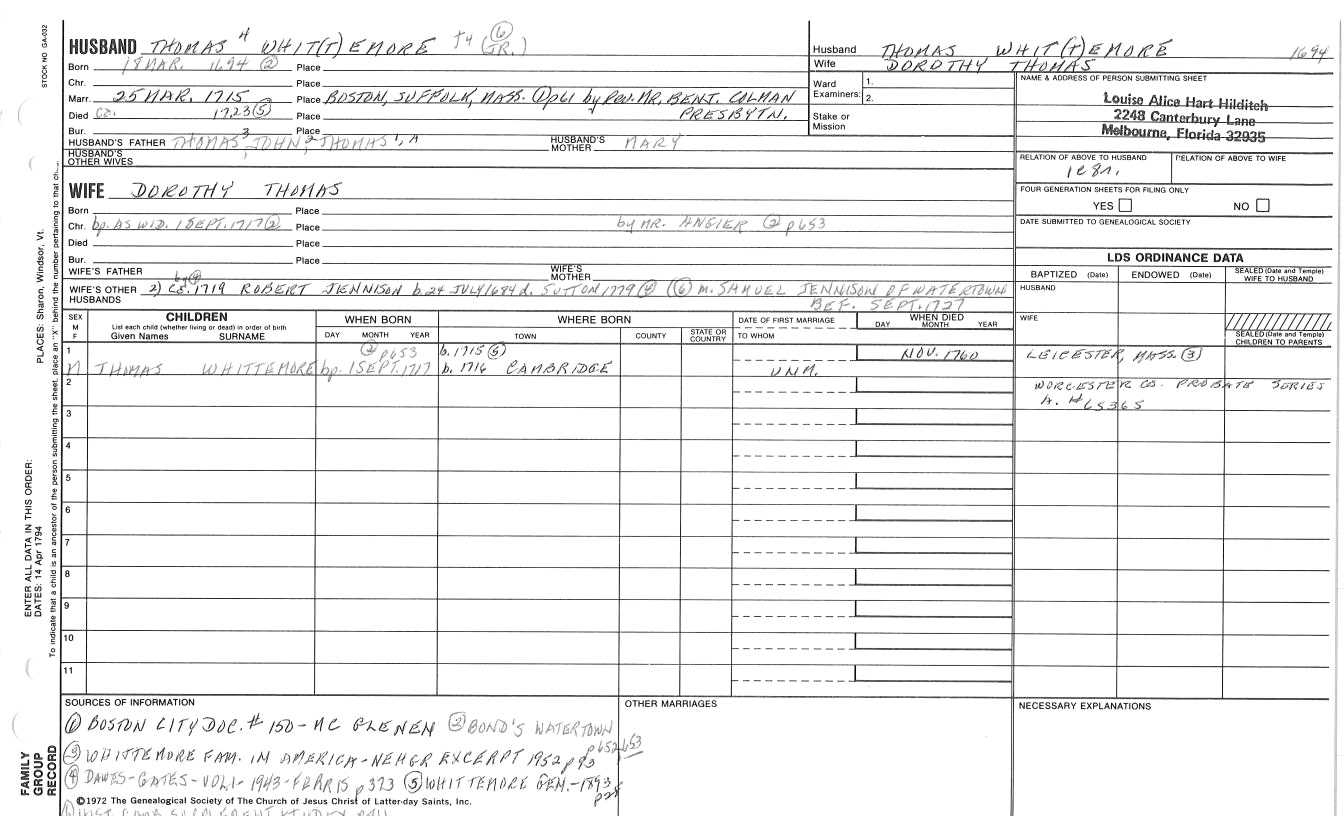 STOCK NO GA-032
HUSBAND THOMAS 4 WHIT(T)EMORE t4 (6) (JR.)
Born 18 MAR. 1694 (2) Place
Chr. Place
Marr. 25 MAR. 1715 Place BOSTON, SUFFOLK, MASS. (1) p61 by Rev. MR. BENT. COLMAN
Died ca. 1723 (5) Place PRESBYTN.
Bur. Place
HUSBAND'S FATHER THOMAS 3 JOHN 2 THOMAS 1, A HUSBAND'S MOTHER MARY
HUSBAND'S OTHER WIVES
Husband THOMAS WHIT(T)EMORE 1694
Wife DOROTHY THOMAS
Ward 1.
Examiners: 2.
Stake or
Mission
NAME & ADDRESS OF PERSON SUBMITTING SHEET
Louise Alice Hart Hilditch
2248 Canterbury Lane
Melbourne, Florida 32935
RELATION OF ABOVE TO HUSBAND RELATION OF ABOVE TO WIFE
1C8r.
FOUR GENERATION SHEETS FOR FILING ONLY
YES NO
DATE SUBMITTED TO GENEALOGICAL SOCIETY
WIFE DOROTHY THOMAS
Born Place
Chr. bp. AS WID. 1 SEPT. 1717 (2) Place by MR. ANGIER (2) p653
Died Place
Bur. Place
WIFE'S FATHER WIFE'S MOTHER
by (4)
WIFE'S OTHER HUSBANDS 2) Ca. 1719 ROBERT JENNISON b. 24 JULY 1684 d. SUTTON 1779 (4) (6) m. SAMUEL JENNISON OF WATERTOWN
BEF. SEPT. 1727
LDS ORDINANCE DATA
BAPTIZED (Date) ENDOWED (Date) SEALED (Date and Temple) WIFE TO HUSBAND
HUSBAND
WIFE
SEALED (Date and Temple) CHILDREN TO PARENTS
SEX M F
CHILDREN
List each child (whether living or dead) in order of birth
Given Names SURNAME
WHEN BORN
DAY MONTH YEAR
WHERE BORN
TOWN COUNTY STATE OR COUNTRY
DATE OF FIRST MARRIAGE
TO WHOM
WHEN DIED
DAY MONTH YEAR
1 (2) p653 b. 1715 (5) NOV. 1760 LEICESTER, MASS. (3)
M THOMAS WHITTEMORE bp. 1 SEPT. 1717 b. 1716 CAMBRIDGE UNM.
2 WORCESTER CO. PROBATE SERIES
A. #65365
3
4
5
6
7
8
9
10
11
SOURCES OF INFORMATION
(1) BOSTON CITY DOC. # 150 - MC GLENEN (2) BOND'S WATERTOWN
p652-653
(3) WHITTEMORE FAM. IN AMERICA - NEHGR EXCERPT 1952 p93
(4) DAWES-GATES - VOL 1 - 1943 - FERRIS p373 (5) WHITTEMORE GEN. - 1893
©1972 The Genealogical Society of The Church of Jesus Christ of Latter-day Saints, Inc.
OTHER MARRIAGES
NECESSARY EXPLANATIONS
PLACES: Sharon, Windsor, Vt.
ENTER ALL DATA IN THIS ORDER:
DATES: 14 Apr 1794
To indicate that a child is an ancestor of the person submitting the sheet, place an "X" behind the number pertaining to that
FAMILY
GROUP
RECORD